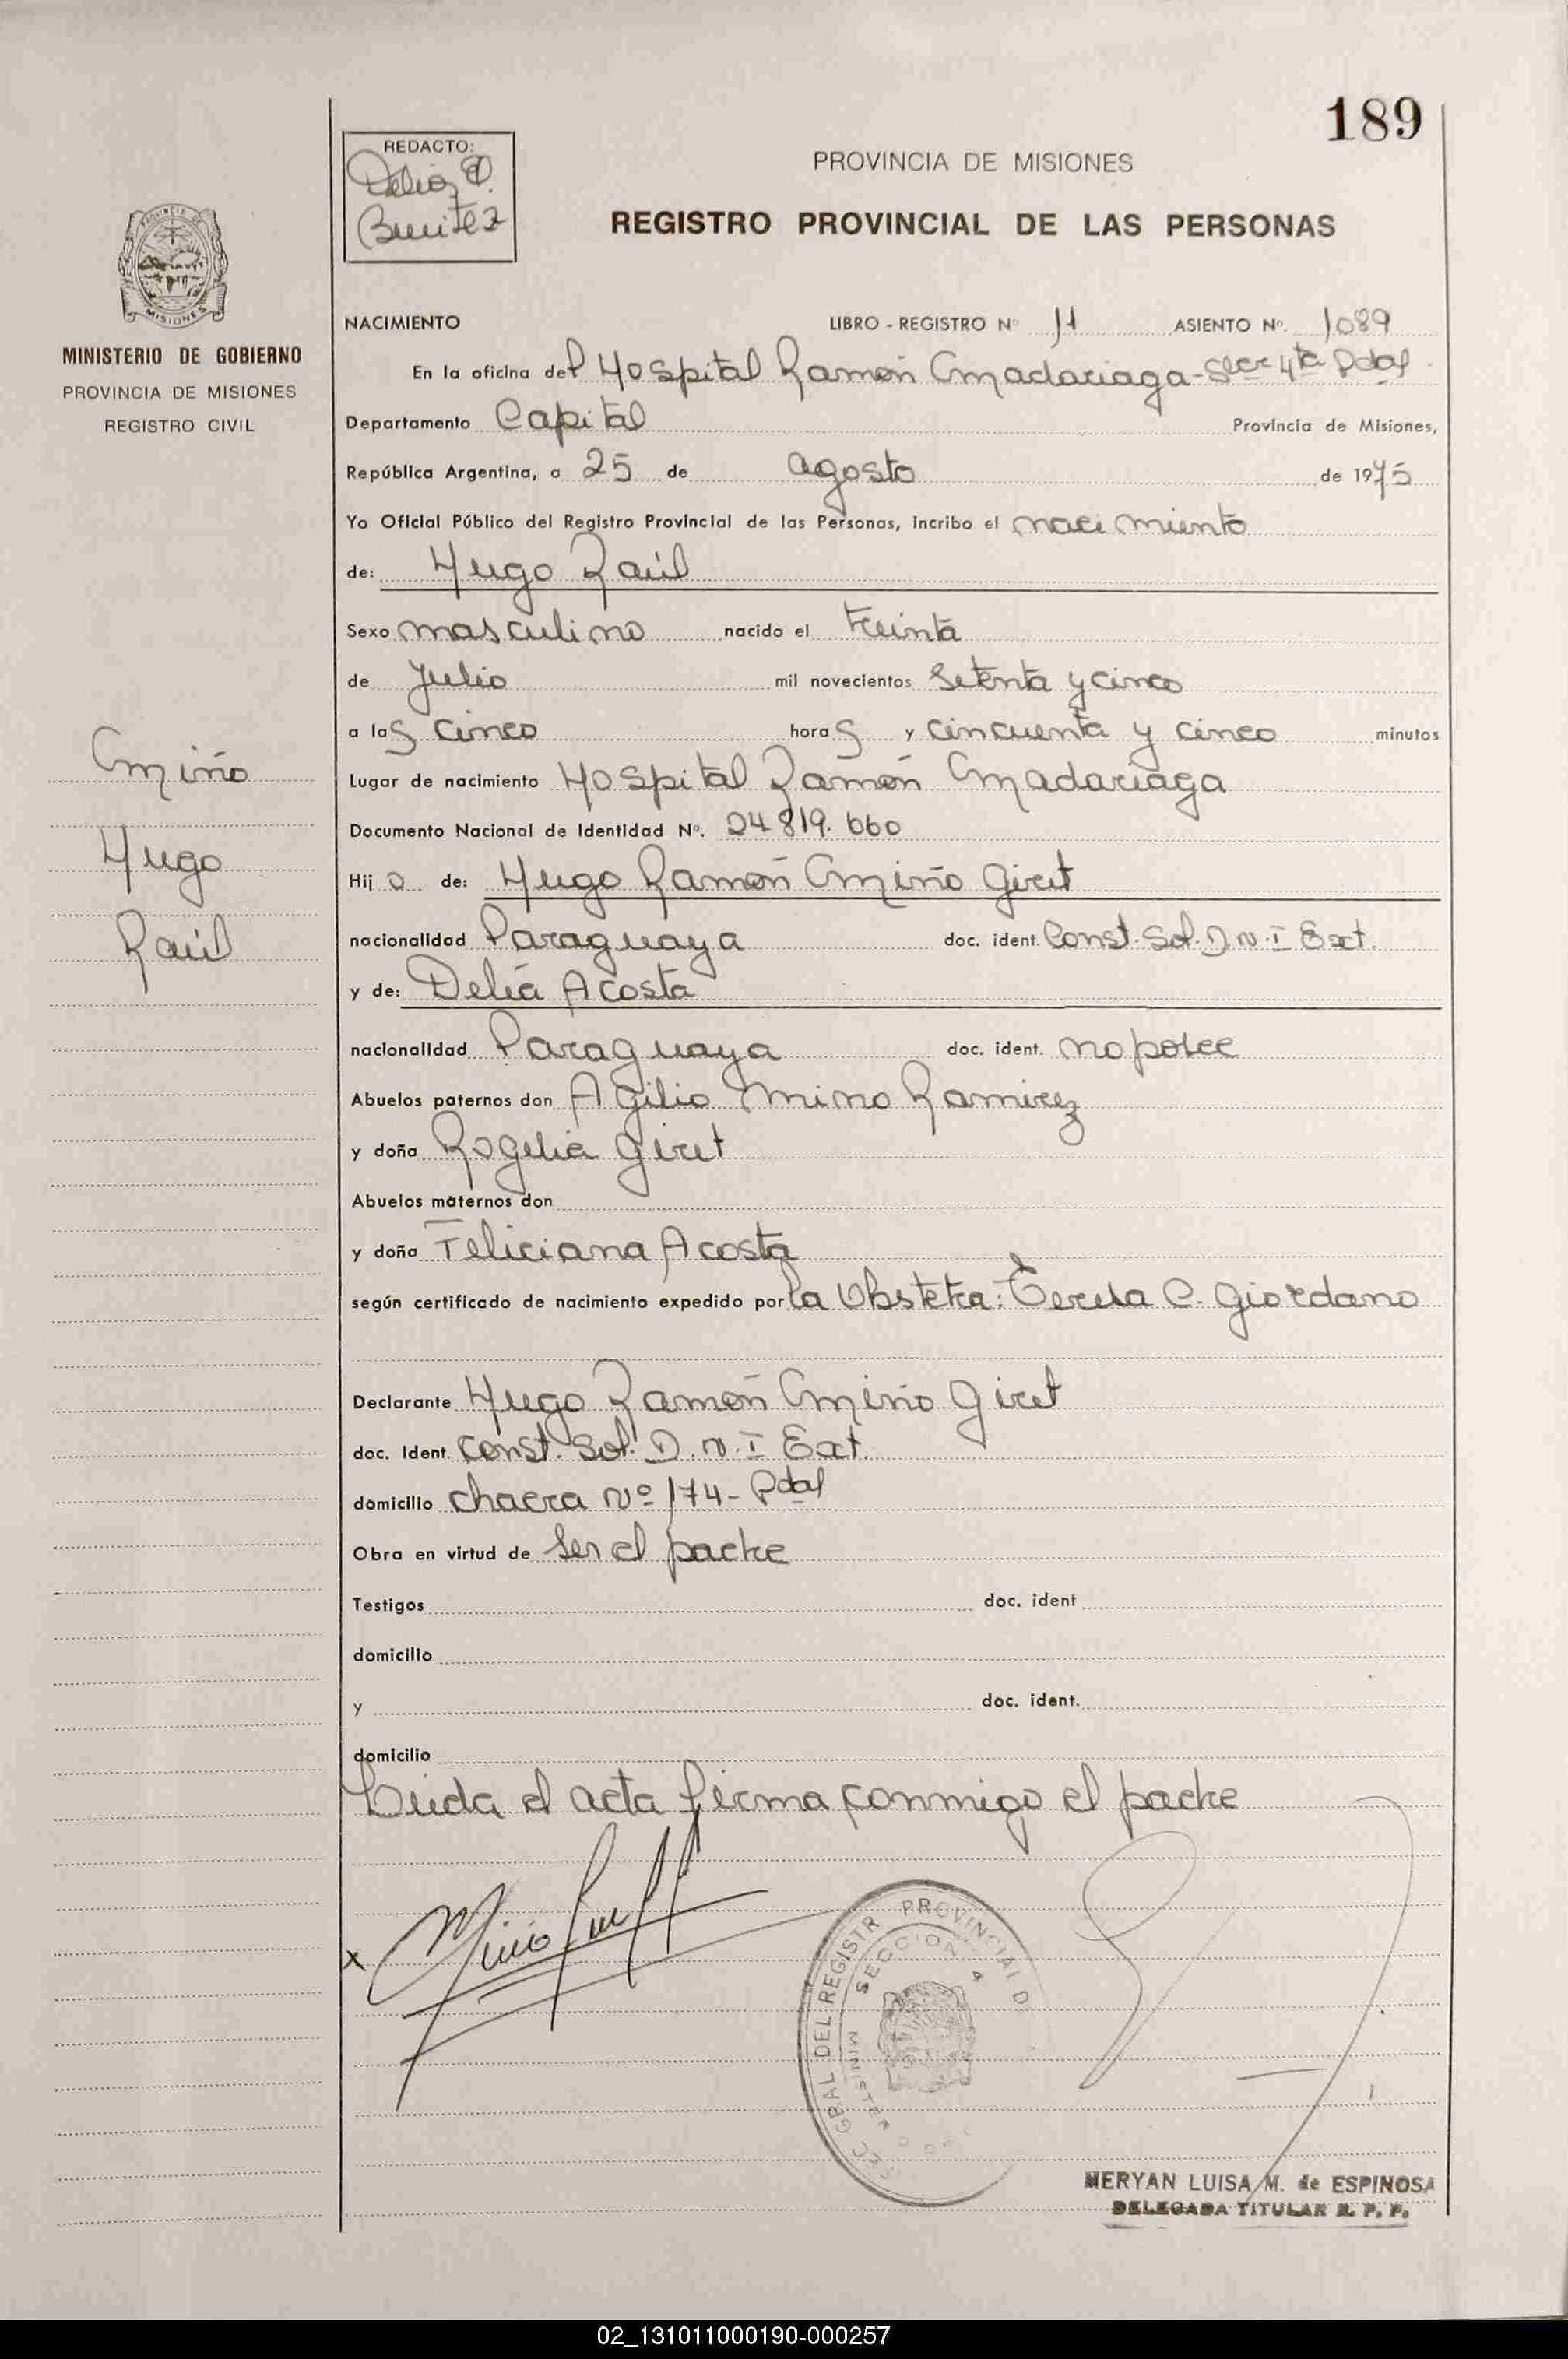 189
REDACTO:
Delia E.
Benitez
PROVINCIA DE MISIONES
REGISTRO PROVINCIAL DE LAS PERSONAS
MISIONES
MINISTERIO DE GOBIERNO
PROVINCIA DE MISIONES
REGISTRO CIVIL
Miño
Hugo
Raúl
NACIMIENTO LIBRO - REGISTRO Nº 11 ASIENTO Nº. 1089
En la oficina del Hospital Ramón Madariaga - Secc 4ta Pdas
Departamento Capital Provincia de Misiones,
República Argentina, a 25 de agosto de 1975
Yo Oficial Público del Registro Provincial de las Personas, incribo el nacimiento
de: Hugo Raúl
Sexo masculino nacido el treinta
de Julio mil novecientos setenta y cinco
a las cinco horas y cincuenta y cinco minutos
Lugar de nacimiento Hospital Ramón Madariaga
Documento Nacional de Identidad Nº. 24.819.660
Hijo de: Hugo Ramón Miño Giret
nacionalidad Paraguaya doc. ident. Const. Sol. D.N.I Ext.
y de: Delia Acosta
nacionalidad Paraguaya doc. ident. no posee
Abuelos paternos don Agilio Mino Ramirez
y doña Rogelia Giret
Abuelos maternos don
y doña Feliciana Acosta
según certificado de nacimiento expedido por la Obstetra: Teresa C. Giordano
Declarante Hugo Ramón Miño Giret
doc. Ident. Const. Sol. D.N.I Ext.
domicilio chacra Nº 174 - Pdas
Obra en virtud de ser el padre
Testigos doc. ident
domicilio
y doc. ident.
domicilio
Leida el acta firma conmigo el padre
x Miño
GRAL DEL REGISTR PROVINCIAL D
SECCION 4
MERYAN LUISA M. de ESPINOSA
DELEGADA TITULAR R. P. P.
02_131011000190-000257